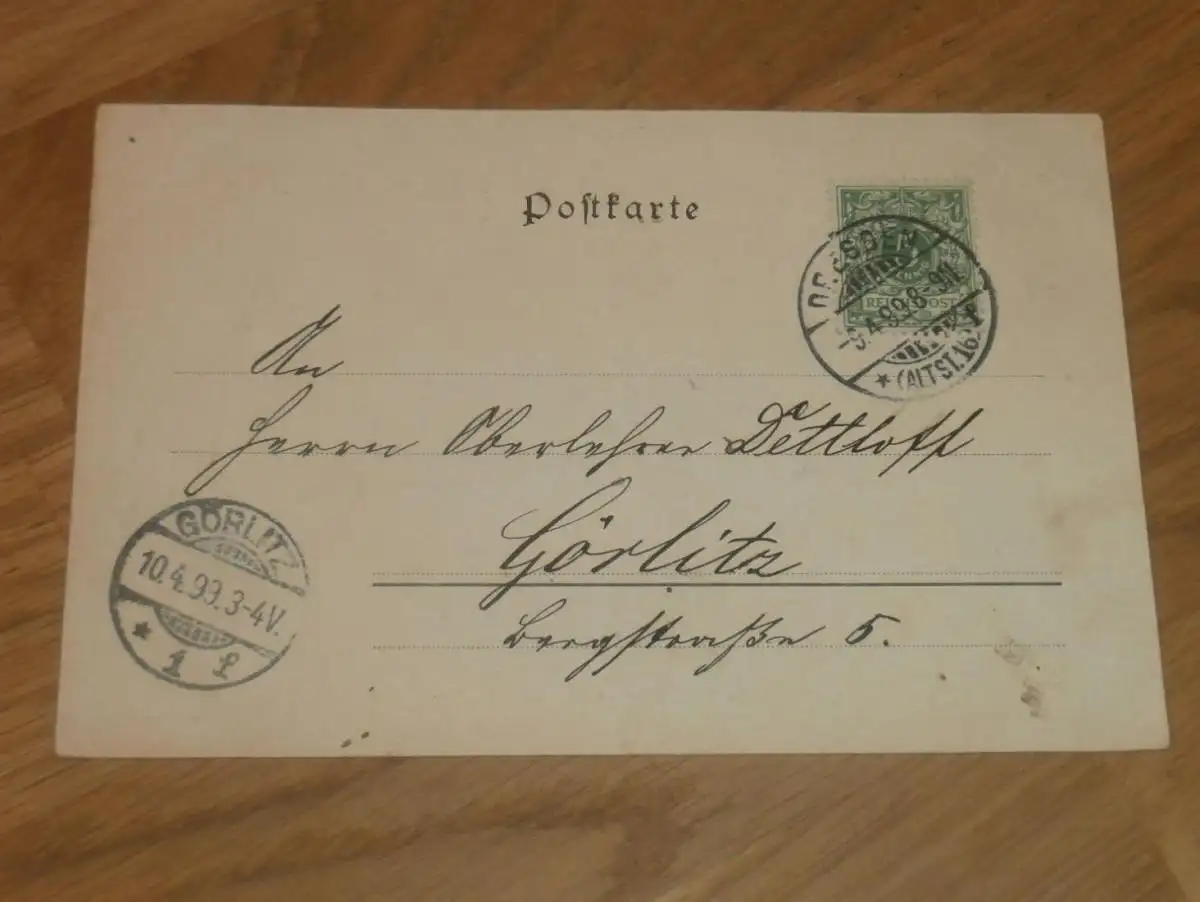 Postkarte
5
REICHSPOST
DRESDEN
9.4.99.8-9N
* (ALTST.) 16. f
An
Herrn Oberlehrer Dettloff
Görlitz
Bergstraße 5.
GÖRLITZ
10.4.99.3-4V.
* 1 f